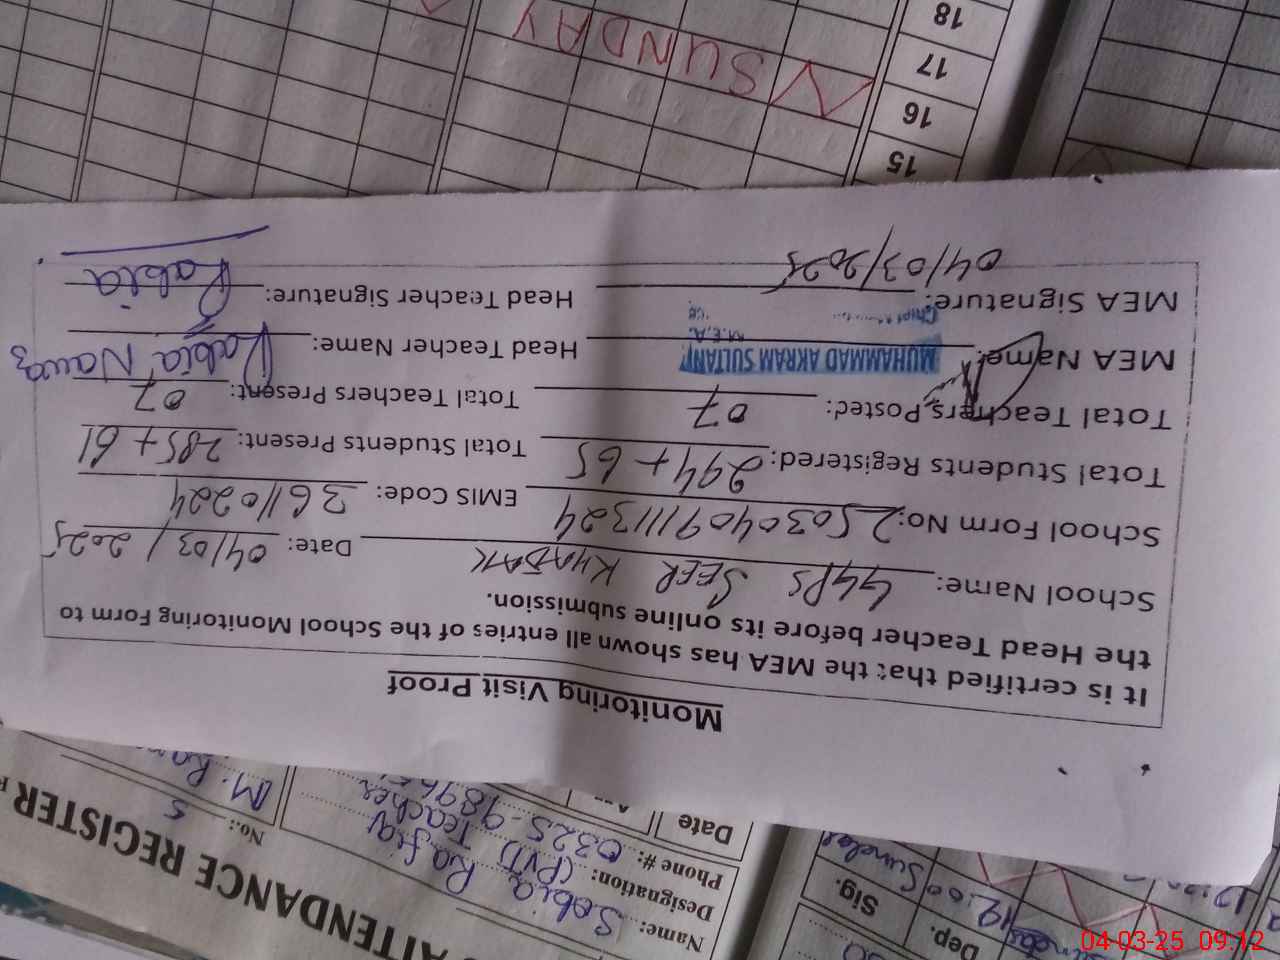 ATTENDANCE REGISTER
No.: 5
Name: Sobia Rafiq
Designation: (PVT) Teacher
Phone #: 0325-9896
Date
Dep.
Sig.
12:00
Monitoring Visit Proof
It is certified that the MEA has shown all entries of the School Monitoring Form to
the Head Teacher before its online submission.
School Name: GGPS SEER KHADAK Date: 04/03/2025
School Form No: 25030409111324 EMIS Code: 36110224
Total Students Registered: 294+65 Total Students Present: 285+61
Total Teachers Posted: 07 Total Teachers Present: 07
MEA Name: MUHAMMAD AKRAM SULTANI Head Teacher Name: Rabia Nawaz
M.E.A.
MEA Signature: Head Teacher Signature: Rabia
04/03/2025
15
16
17
18
SUNDAY
04-03-25 09:12